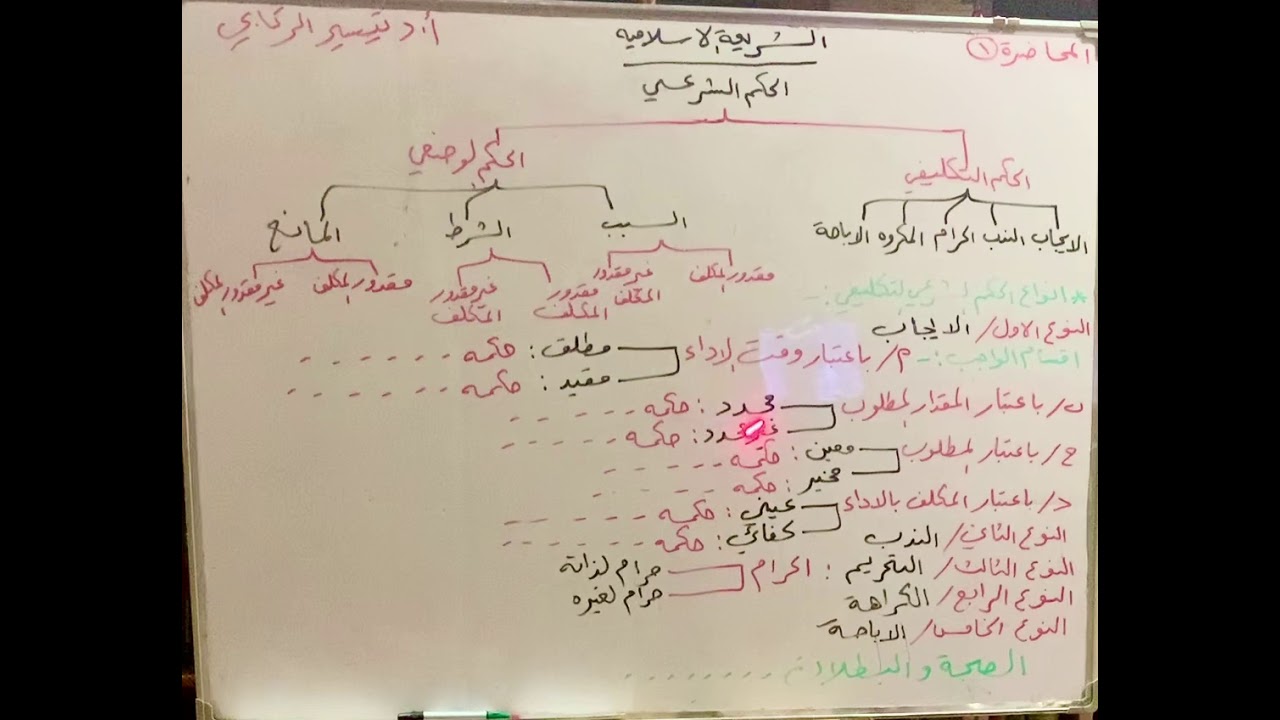 المحاضرة ①
أ.د تيسير الركابي
الشريعة الاسلامية
الحكم الشرعي
الحكم التكليفي
الحكم الوضعي
الايجاب الندب الحرام المكروه الاباحة
السبب الشرط المانع
مقدور المكلف غير مقدور المكلف
مقدور المكلف غير مقدور المكلف
مقدور المكلف غير مقدور المكلف
* انواع الحكم الشرعي التكليفي :-
النوع الاول / الايجاب
اقسام الواجب :- م/ باعتبار وقت الاداء
مطلق : حكمه ------
مقيد : حكمه ------
ب/ باعتبار المقدار المطلوب
محدد : حكمه -----
غير محدد : حكمه -----
ج/ باعتبار المطلوب
معين : حكمه -----
مخير : حكمه -----
د/ باعتبار المكلف بالاداء
عيني : حكمه -----
كفائي : حكمه -----
النوع الثاني / الندب
النوع الثالث / التحريم : الحرام
حرام لذاته
حرام لغيره
النوع الرابع / الكراهة
النوع الخامس / الاباحة
الصحة والبطلان --------